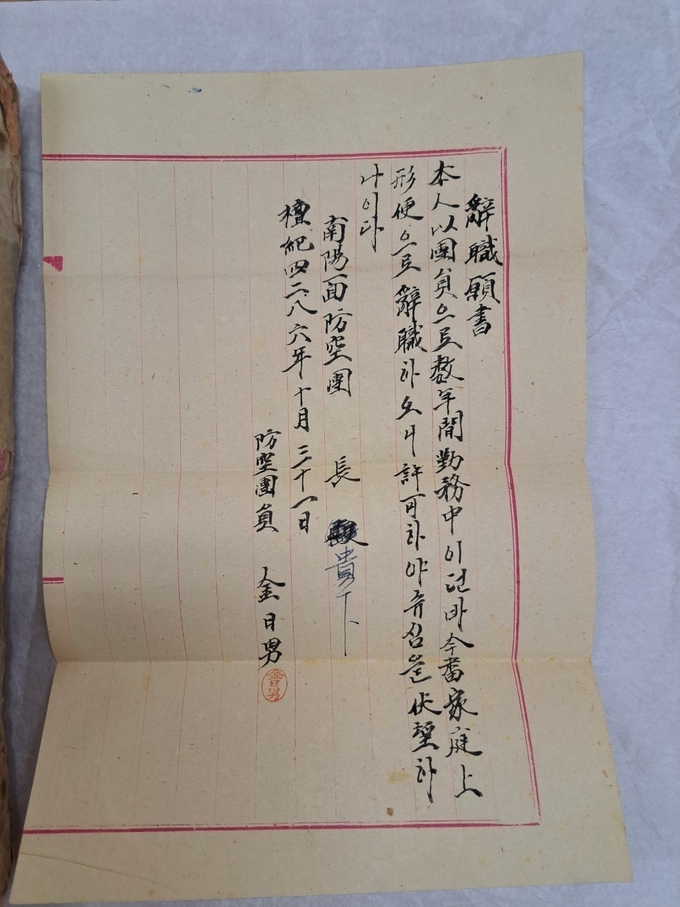 辭職願書
本人以團員으로數年間勤務中이던바今番家庭上
形便으로辭職하오니許可하야쥬심을伏望하
나이다
南陽面防空團 長 貴下
檀紀四二八六年十月三十一日
防空團員 金日男
金日男